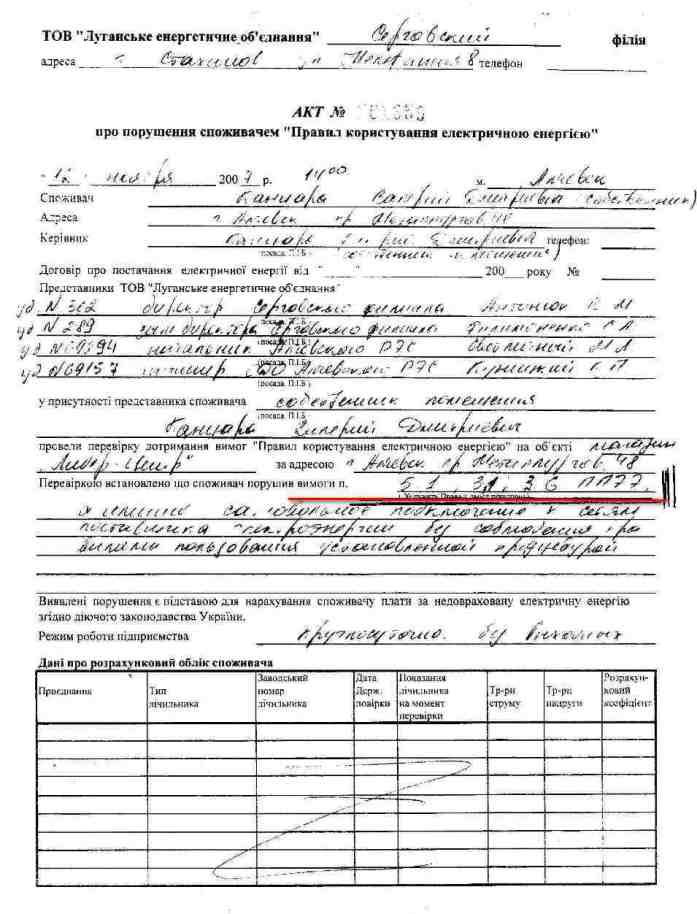 ТОВ "Луганське енергетичне об'єднання" Серговский філія
адреса г. Стаханов ул 8 телефон
АКТ №
про порушення споживачем "Правил користування електричною енергією"
"12" ноября 2007 р. 14 00 м. Алчевск
Споживач Дмитриевич (собственник)
Адреса г. Алчевск пр Металлургов 48
Керівник Дмитриевич телефон:
(посада, П.І.Б.)
Договір про постачання електричної енергії від "____" 200__ року №
Представники ТОВ "Луганське енергетичне об'єднання"
уд N 362 директор Серговского филиала
(посада, П.І.Б.)
уд N 289 зам директора Серговского филиала
(посада, П.І.Б.)
уд начальник Алчевского РЭС
(посада, П.І.Б.)
уд инженер Алчевского РЭС
(посада, П.І.Б.)
у присутності представника споживача собственник помещения
(посада, П.І.Б.)
Валерий Дмитриевич
провели перевірку дотримання вимог "Правил користування електричною енергією" на об'єкті магазин
"Лидер-Центр" за адресою г Алчевск пр Металлургов, 48
Перевіркою встановлено що споживач порушив вимоги п. 5.1, 3.1, 3.6 ППЭЭ
а именно самовольное подключение к сетям
поставщика электроэнергии без соблюдения пра
вилами пользования установленной процедурой
Виявлені порушення є підставою для нарахування споживачу плати за недовраховану електричну енергію
згідно діючого законодавства України.
Режим роботи підприємства круглосуточно. без выходных
Дані про розрахунковий облік споживача
Приєднання Тип лічильника Заводський номер лічильника Дата Держ. повірки Показання лічильника на момент перевірки Тр-ри струму Тр-ри напруги Розрахун-ковий коефіцієнт